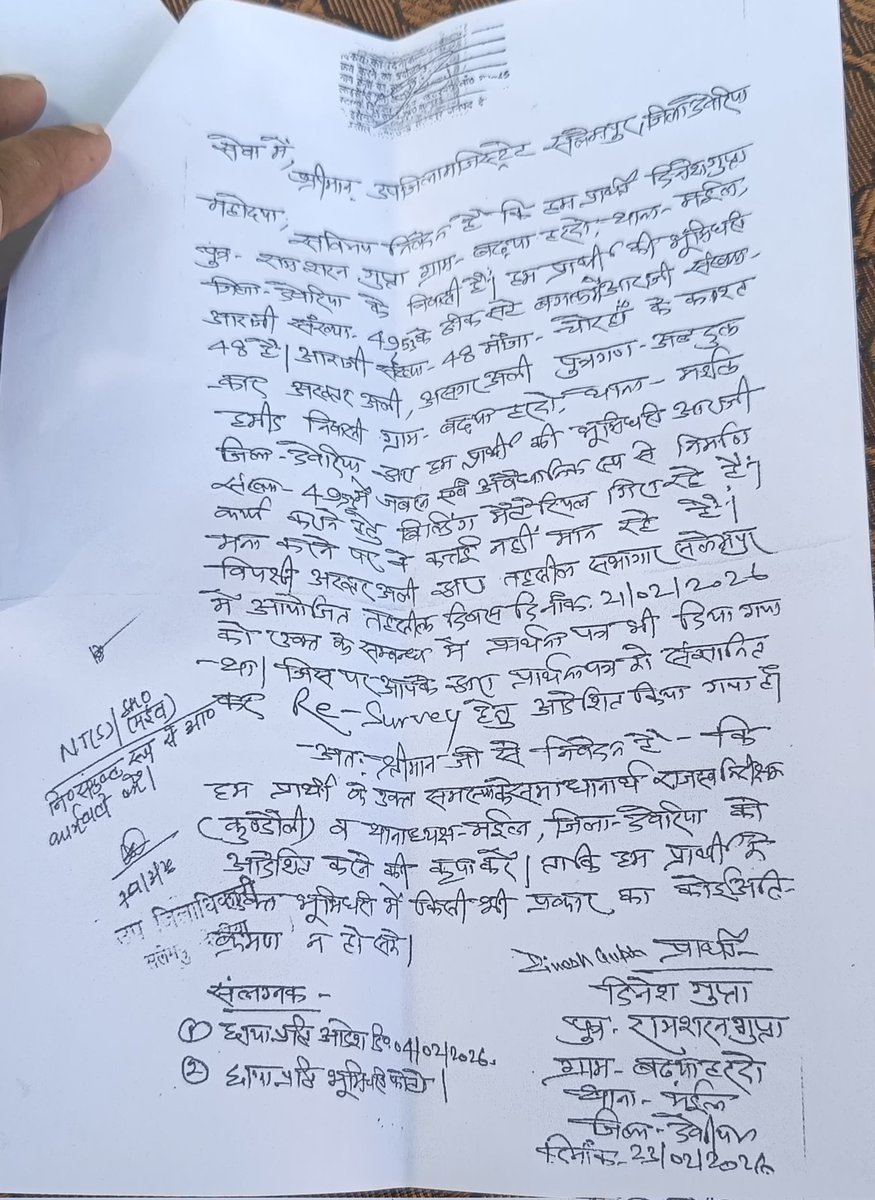 सेवा में,
श्रीमान् उपजिलामजिस्ट्रेट सलेमपुर, जिला देवरिया
महोदया,
सविनय निवेदन है कि हम प्रार्थी दिनेश गुप्ता
पुत्र- रामशरन गुप्ता ग्राम- बढ़या हरदो, थाना- मईल,
जिला- देवरिया के निवासी हैं। हम प्रार्थी की भूमिधरी
आराजी संख्या- 495 के ठीक सटे बगल में आराजी संख्या-
48 है। आराजी संख्या- 48 मौजा- चोरहाँ के काश्त
-कार अख्तर अली, असगर अली पुत्रगण- अब्दुल
हमीद निवासी ग्राम- बढ़या हरदो, थाना- मईल
जिला- देवरिया द्वारा हम प्रार्थी की भूमिधरी आराजी
संख्या- 495 में जबरन एवं अवैधानिक रूप से निर्माण
कार्य कराने हेतु बिल्डिंग मैटेरियल गिरा रहे हैं।
मना करने पर वे कत्तई नहीं मान रहे हैं।
विपक्षी अख्तर अली द्वारा तहसील सभागार सलेमपुर
में आयोजित तहसील दिवस दिनाँक: 21/02/2026
को उक्त के सम्बन्ध में प्रार्थना पत्र भी दिया गया
-था। जिस पर आपके द्वारा प्रार्थना पत्र को संज्ञानित
कर Re-Survey हेतु आदेशित किया गया है।
-अत: श्रीमान जी से निवेदन है - कि
हम प्रार्थी के उक्त समस्या के समाधानार्थ राजस्व निरीक्षक
(कुण्डौली) व थानाध्यक्ष- मईल, जिला- देवरिया को
आदेशित करने की कृपा करें। ताकि हम प्रार्थी के
उक्त भूमिधरी में किसी भी प्रकार का कोई अति-
क्रमण न हो सके।
NT(S)/SHO
(मईल)
रूप से
कार्यवाही करें।
उप जिलाधिकारी
Dinesh Gupta प्रार्थी-
दिनेश गुप्ता
पुत्र- रामशरन गुप्ता
ग्राम- बढ़या हरदो
थाना- मईल
जिला- देवरिया
दिनाँक- 23/02/2026
संलग्नक -
① छाया प्रति आदेश दि० 04/02/2026.
② छाया प्रति भूमिधरी फोटो।